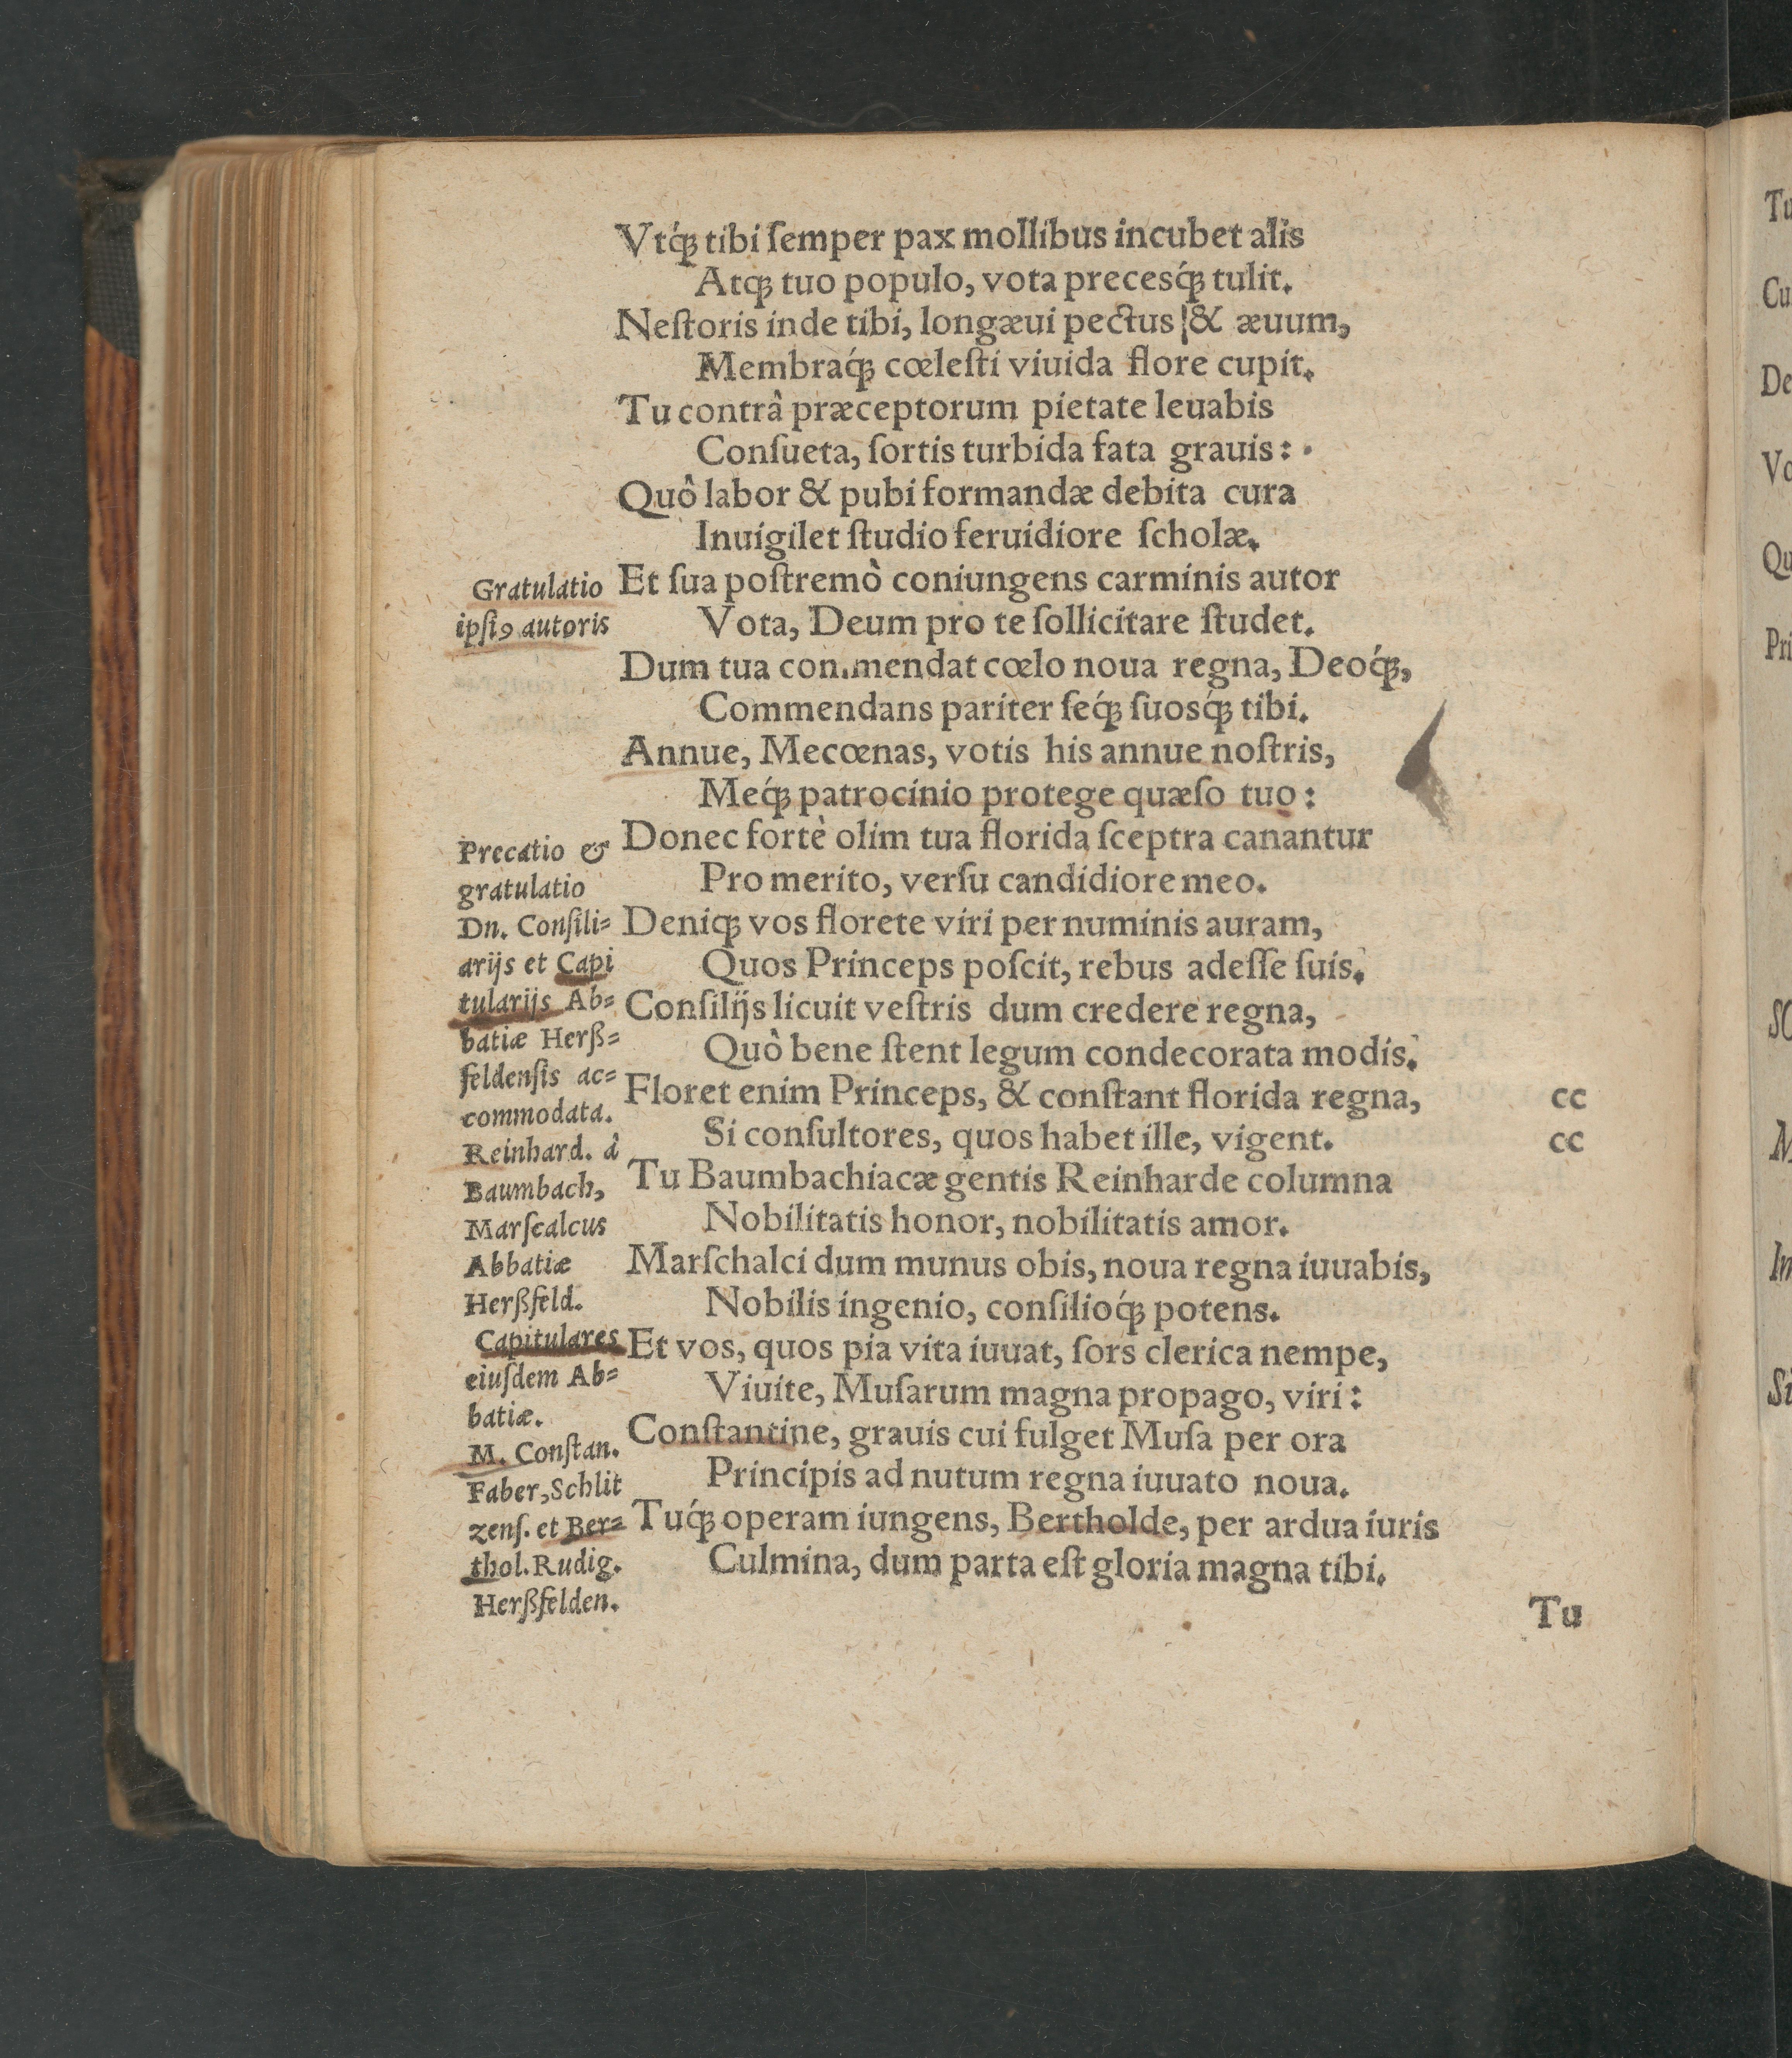 Vtq́ꝫ tibi ſemper pax mollibus incubet alis
Atqꝫ tuo populo, vota precesq́ꝫ tulit.
Neſtoris inde tibi, longæui pectus & æuum,
Membraq́ꝫ cœleſti viuida flore cupit.
Tu contrâ præceptorum pietate leuabis
Conſueta, ſortis turbida fata grauis:
Quô labor & pubi formandæ debita cura
Inuigilet ſtudio feruidiore ſcholæ.
Gratulatio
ipſiꝰ autoris
Et ſua poſtremò coniungens carminis autor
Vota, Deum pro te ſollicitare ſtudet.
Dum tua commendat cœlo noua regna, Deoq́ꝫ,
Commendans pariter ſeq́ꝫ ſuosq́ꝫ tibi.
Annue, Mecœnas, votis his annue noſtris,
Meq́ꝫ patrocinio protege quæſo tuo:
Donec fortè olim tua florida ſceptra canantur
Pro merito, verſu candidiore meo.
Precatio &
gratulatio
Dn. Conſili=
arijs et Capi
tularijs Ab=
batiæ Herß=
feldenſis ac=
commodata.
Deniqꝫ vos florete viri per numinis auram,
Quos Princeps poſcit, rebus adeſſe ſuis.
Conſilijs licuit veſtris dum credere regna,
Quò bene ſtent legum condecorata modis.
Floret enim Princeps, & conſtant florida regna,
Si conſultores, quos habet ille, vigent.
cc
cc
Reinhard. à
Baumbach,
Marſcalcus
Abbatiæ
Herßfeld.
Tu Baumbachiacæ gentis Reinharde columna
Nobilitatis honor, nobilitatis amor.
Marſchalci dum munus obis, noua regna iuuabis,
Nobilis ingenio, conſilioq́ꝫ potens.
Capitulares
eiuſdem Ab=
batiæ.
Et vos, quos pia vita iuuat, ſors clerica nempe,
Viuite, Muſarum magna propago, viri:
M. Conſtan.
Faber, Schlit
zenſ. et Ber=
thol. Rudig.
Herßfelden.
Conſtantine, grauis cui fulget Muſa per ora
Principis ad nutum regna iuuato noua.
Tuq́ꝫ operam iungens, Bertholde, per ardua iuris
Culmina, dum parta eſt gloria magna tibi.
Tu
Tu
Cu
De
Vo
Qu
Pri
SC
M
In
Si